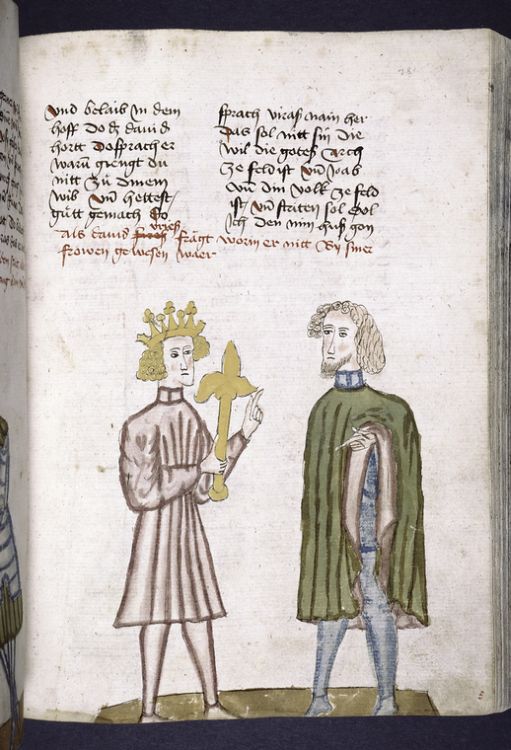 Vnd belaib in dem
hoff do dz dauid
hortt do sprach er
warū giengt du
nitt zů dinem
wib vnd hettest
gůtt gemach Do
sprach vrias nain her
das sol nitt sin die
wil die gotes Arch
ze feld ist vn̄ Joab
vn̄ din volk ze feld
ist vn̄ striten sol Sol
ich den min huß gon
Als dauid vrias frägt worm er nitt By siner
frowen gewesen waer